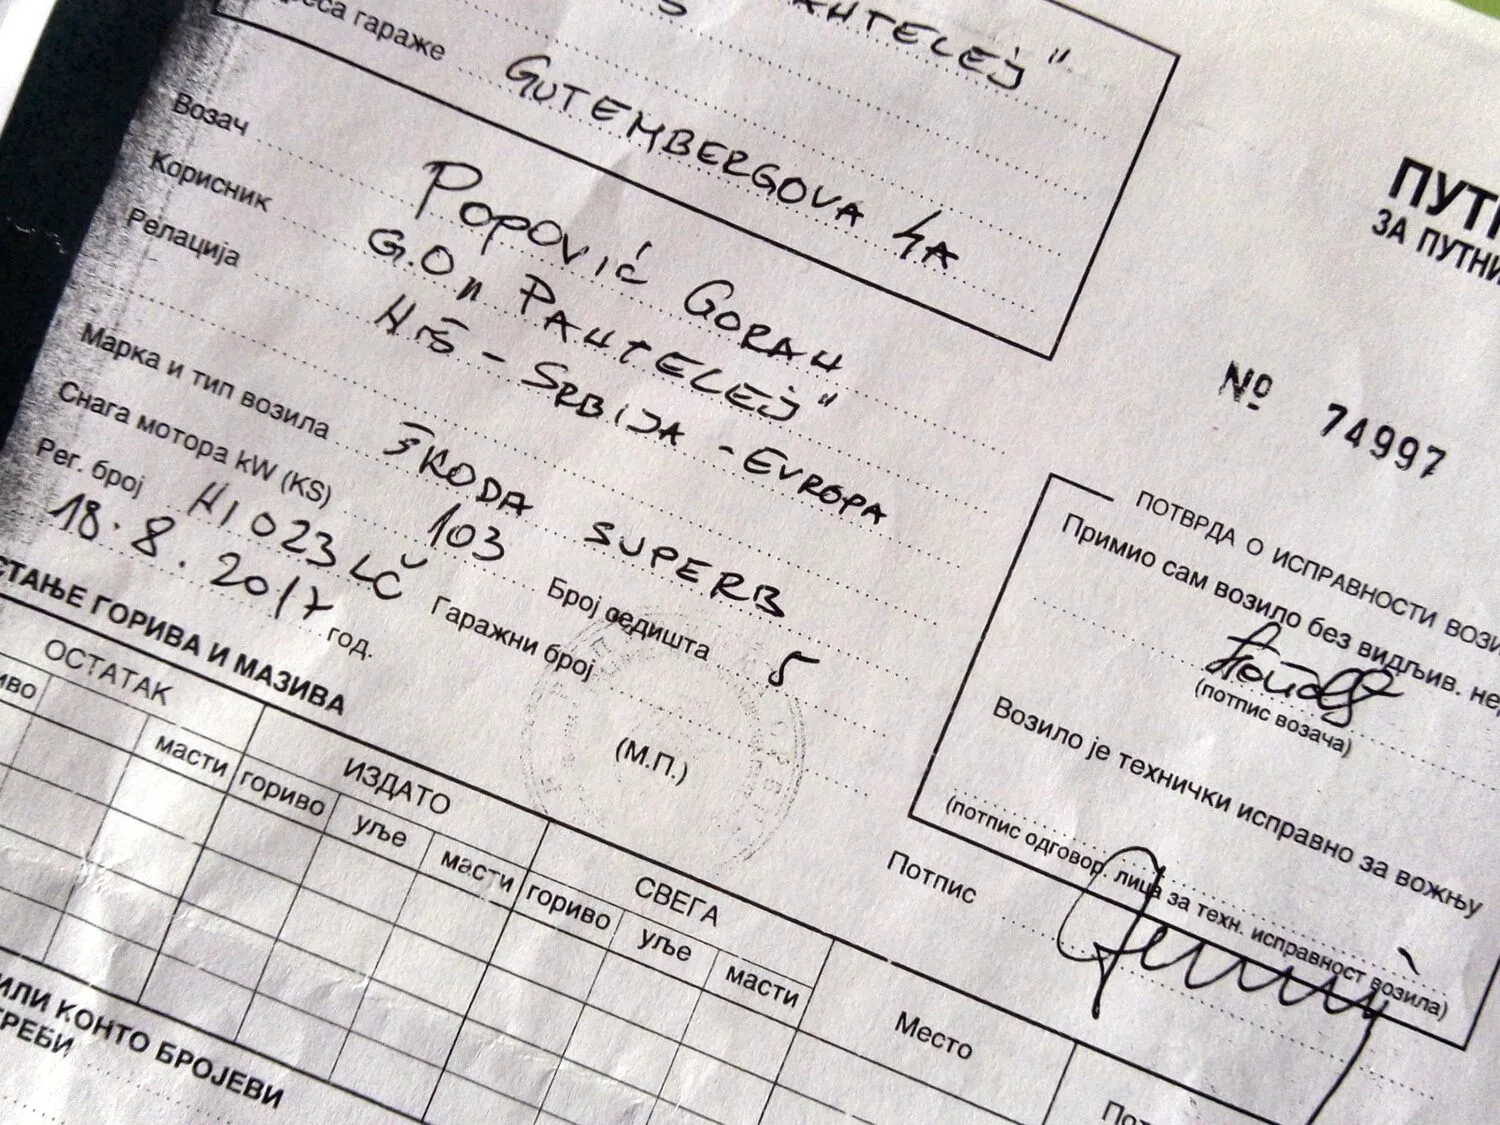 ANTELEJ"
реса гараже GUTEMBERGOVA 4A
Возач POPOVIĆ GORAN
Корисник G.O. "PANTELEJ"
Релација NIŠ - SRBIJA - EVROPA
Марка и тип возила ŠKODA SUPERB
Снага мотора kW (KS) 103 Број седишта 5
Рег. број NI 023 LČ Гаражни број
18.8.2017 год.
(М.П.)
ПУТН
ЗА ПУТНИ
№ 74997
ПОТВРДА О ИСПРАВНОСТИ ВОЗИ
Примио сам возило без видљив. не
(потпис возача)
Возило је технички исправно за вожњу
(потпис одговор. лица за техн. исправност возила)
Потпис
СТАЊЕ ГОРИВА И МАЗИВА
ОСТАТАК ИЗДАТО СВЕГА
иво масти гориво уље масти гориво уље масти Место
Пот
ИЛИ КОНТО БРОЈЕВИ
РЕБИ